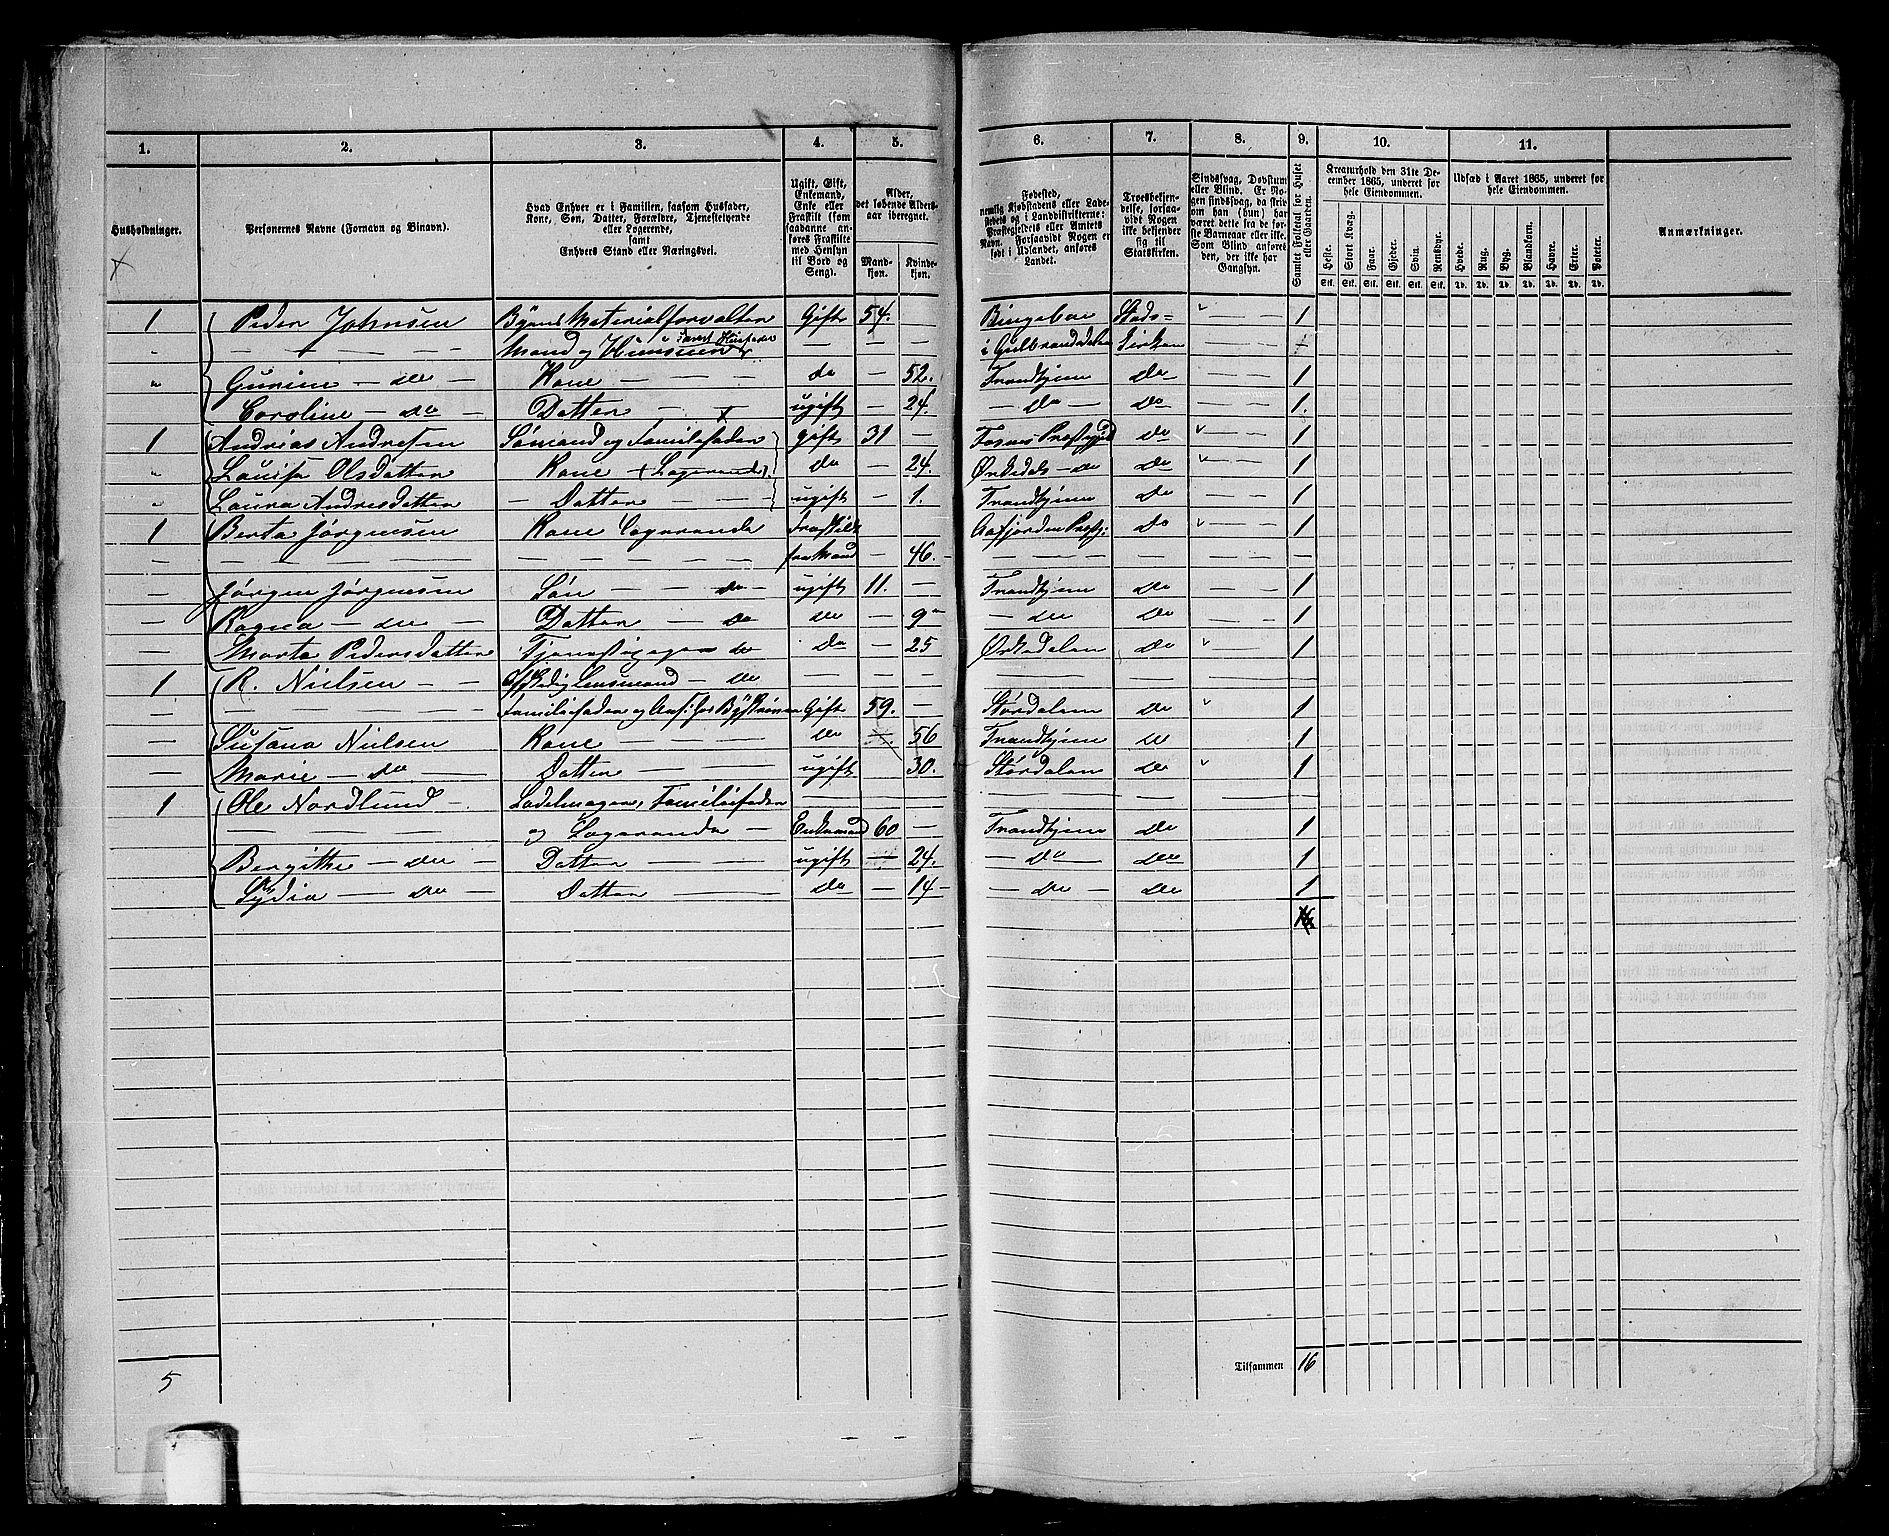 1. 2. 3. 4. 5. 6. 7. 8. 9. 10. 11.
Husholdninger.
Personernes Navne (Fornavn og Binavn).
Hvad Enhver er i Familien, saasom Husfader, Kone, Søn, Datter, Forældre, Tjenestetyende eller Logerende, samt Enhvers Stand eller Næringsvei.
Ugift, Gift, Enkemand, Enke eller Fraskilt (som saadanne anføres Fraskilte med Hensyn til Bord og Seng).
Alder, det løbende Alders-aar iberegnet.
Mand-kjøn. Kvinde-kjøn.
Fødested, nemlig Kjøbstadens eller Ladestedets og i Landdistrikterne: Præstegjeldets eller Amtets Navn. Forsaavidt Nogen er født i Udlandet, anføres Landet.
Troesbekjendelse, forsaavidt Nogen ikke bekjender sig til Statskirken.
Sindssvag, Døvstum eller Blind. Er Nogen sindssvag, da skrives om han (hun) har været dette fra de første Barneaar eller ikke. Som Blind anføres den, der ikke har Gangsyn.
Samlet Folketal for Huset eller Gaarden.
Kreaturhold den 31te December 1865, underet for hele Eiendommen.
Heste. Stort Kvæg. Faar. Gjeder. Svin. Rensdyr.
Udsæd i Aaret 1865, underet for hele Eiendommen.
Hvede. Rug. Byg. Blandkorn. Havre. Erter. Poteter.
Anmærkninger.
1 Peder Johnsen Byens Materialforvalter Gift 54. — Stads= 1
" — — — — Mand og — — — i Gulbrandsdalen kirken
" Gurine — do — Kone — — do — 52. Trondhjem do — 1
Caroline — do — Datter — — ugift — 24. — do — do 1.
1 Andrias Andresen Sømand og Familiefader gift 31 — Fosnes Præstegjeld do " 1
" Louisa Olsdatter Kone (Logerende) do — 24. Ørkedals — do do " 1
" Laura Andresdatter — Datter — ugift — 1. Trondhjem do — 1
1 Berta Jørgensen Kone Logerende fraskildt Aafjorden Præstgj: do " 1
— — — — — — — — fra Mand — 46. — — —
— Jørgen Jørgensen Søn — do — ugift 11. — Trondhjem do — 1
— Ragna — do — Datter — do do — 9 — do do — 1
— Marta Pedersdatter Tjenestepige do do — 25 Ørkedalen do " 1
1 R. Nielsen — — Lensmand — do — — — — —
— — — — Familiefader og Gift 59. — Størdalen do " 1
— Susana Nielsen Kone — — do — 56 Trondhjem do — 1
— Marie — do — Datter — — ugift — 30. Størdalen do " 1
1 Ole Nordlund — Sadelmager, Familiefader — — — — —
— — — — og Logerende — Enkemand 60 — Trondhjem do 1
Bergithe — do — Datter — — ugift — 24. — do — do 1
Lydia — do — Datter — — do — 14 — do — do 1
16
5 Tilsammen 16